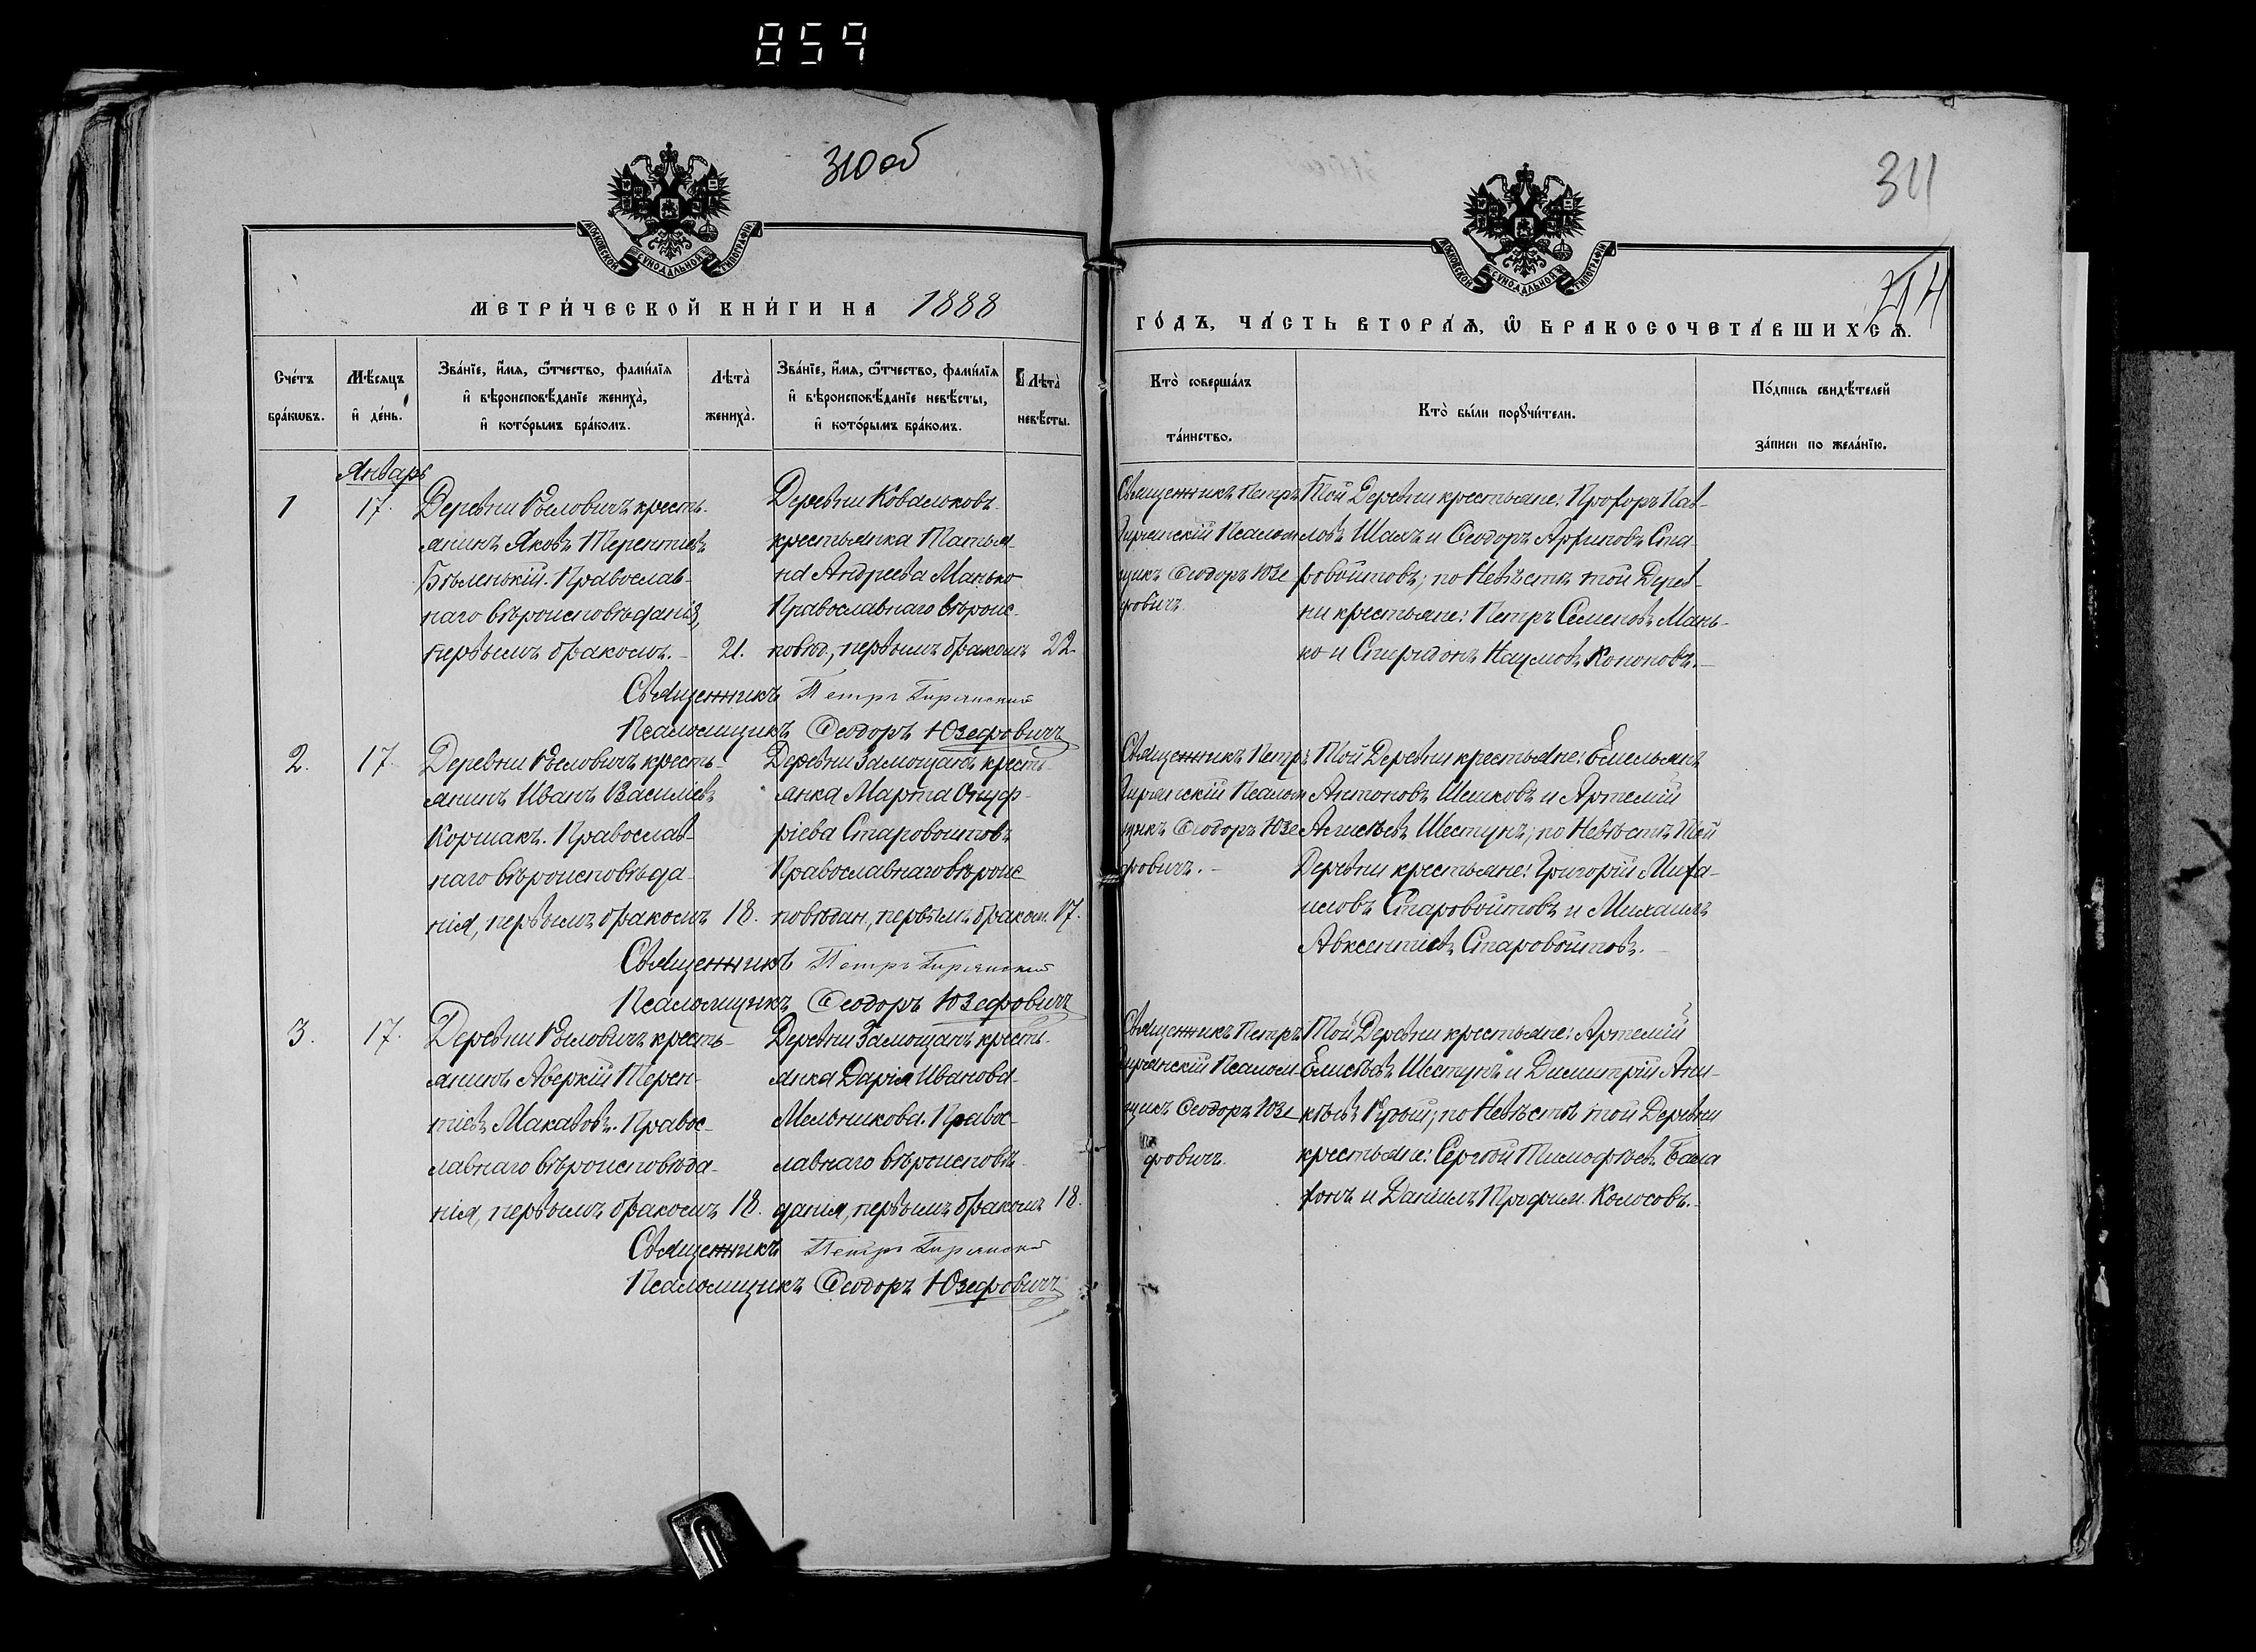 859
310 об
311
МОСКОВСКОЙ СУНОДАЛЬНОЙ ТИПОГРАФІИ
МОСКОВСКОЙ СУНОДАЛЬНОЙ ТИПОГРАФІИ
МЕТРИ́ЧЕСКОЙ КНИ́ГИ НА 1888
ГО́ДЪ, ЧА́СТЬ ВТОРА́Ѧ, Ѡ҆ БРАКОСОЧЕТА́ВШИХСѦ.
Сче́тъ бра́кѡвъ.
Мѣ́сяцъ и҆ де́нь.
Зва́нїе, и҆́мя, ѻ҆́тчество, фами́лїя
и҆ вѣроисповѣ́данїе жениха̀,
и҆ кото́рымъ бра́комъ.
Лѣта̀ жениха̀.
Зва́нїе, и҆́мя, ѻ҆́тчество, фами́лїя
и҆ вѣроисповѣ́данїе невѣ́сты,
и҆ кото́рымъ бра́комъ.
Лѣта̀ невѣ́сты.
Кто̀ соверша́лъ
та́инство.
Кто̀ бы́ли порꙋчи́тели.
По́дпись свидѣ́телей
за́писи по жела́нїю.
Январь
1 17. Деревни Рыловичъ кресть-
янинъ Яковъ Терентіевъ
Бѣленькій. Православ-
наго вѣроисповѣданія,
первымъ бракомъ. 21.
Деревни Ковальковъ
крестьянка Татья-
на Андреева Манько
Православнаго вѣроис-
повѣд, первымъ бракомъ 22.
Священникъ Петръ
Гирянскій Псалом
щикъ Ѳеодоръ Юзе
фовичъ
Той Деревни крестьяне: Прохоръ Пав-
ловъ Шахъ и Ѳеодоръ Архиповъ Ста-
ровойтовъ; по Невѣстѣ той Дерев-
ни крестьяне: Петръ Семеновъ Мань-
ко и Спиридонъ Наумовъ Кононовъ.
Священникъ Петръ Гирянскій
Псаломщикъ Ѳеодоръ Юзефовичъ
2. 17. Деревни Рыловичъ кресть-
янинъ Иванъ Василіевъ
Коршакъ. Православ-
наго вѣроисповѣда-
нія, первымъ бракомъ 18.
Деревни Замощанъ кресть-
янка Марѳа Онуф-
ріева Старовоитовъ
Православнаго вѣроис
повѣдан, первымъ браком. 17.
Священникъ Петръ
Гирянскій Псалом
щикъ Ѳеодоръ Юзе
фовичъ.
Той Деревни крестьяне: Емельянъ
Антоновъ Шешковъ и Артемій
Шестунъ; по Невѣстѣ той
Деревни крестьяне: Григорій Миха-
иловъ Старовойтовъ и Михаилъ
Авксентіевъ Старовойтовъ.
Священникъ Петръ Гирянскій
Псаломщикъ Ѳеодоръ Юзефовичъ
3. 17. Деревни Рыловичъ кресть-
янинъ Аверкій Терен-
тіевъ Макавовъ. Правос-
лавнаго вѣроисповѣда-
нія, первымъ бракомъ 18.
Деревни Замощанъ кресть-
янка Дарія Иванова
Мельникова. Правос-
лавнаго вѣроисповѣ-
данія, первымъ бракомъ 18.
Священникъ Петръ
Гирянскій Псалом-
щикъ Ѳеодоръ Юзе
фовичъ.
Той Деревни крестьяне: Артемій
Елисѣевъ Шестунъ и Димитрій Ани-
кѣевъ; по Невѣстѣ той Деревни
крестьяне: Сергѣй Тимофѣевъ Бала
хонъ и Даніилъ Трофим. Колосовъ.
Священникъ Петръ Гирянскій
Псаломщикъ Ѳеодоръ Юзефовичъ